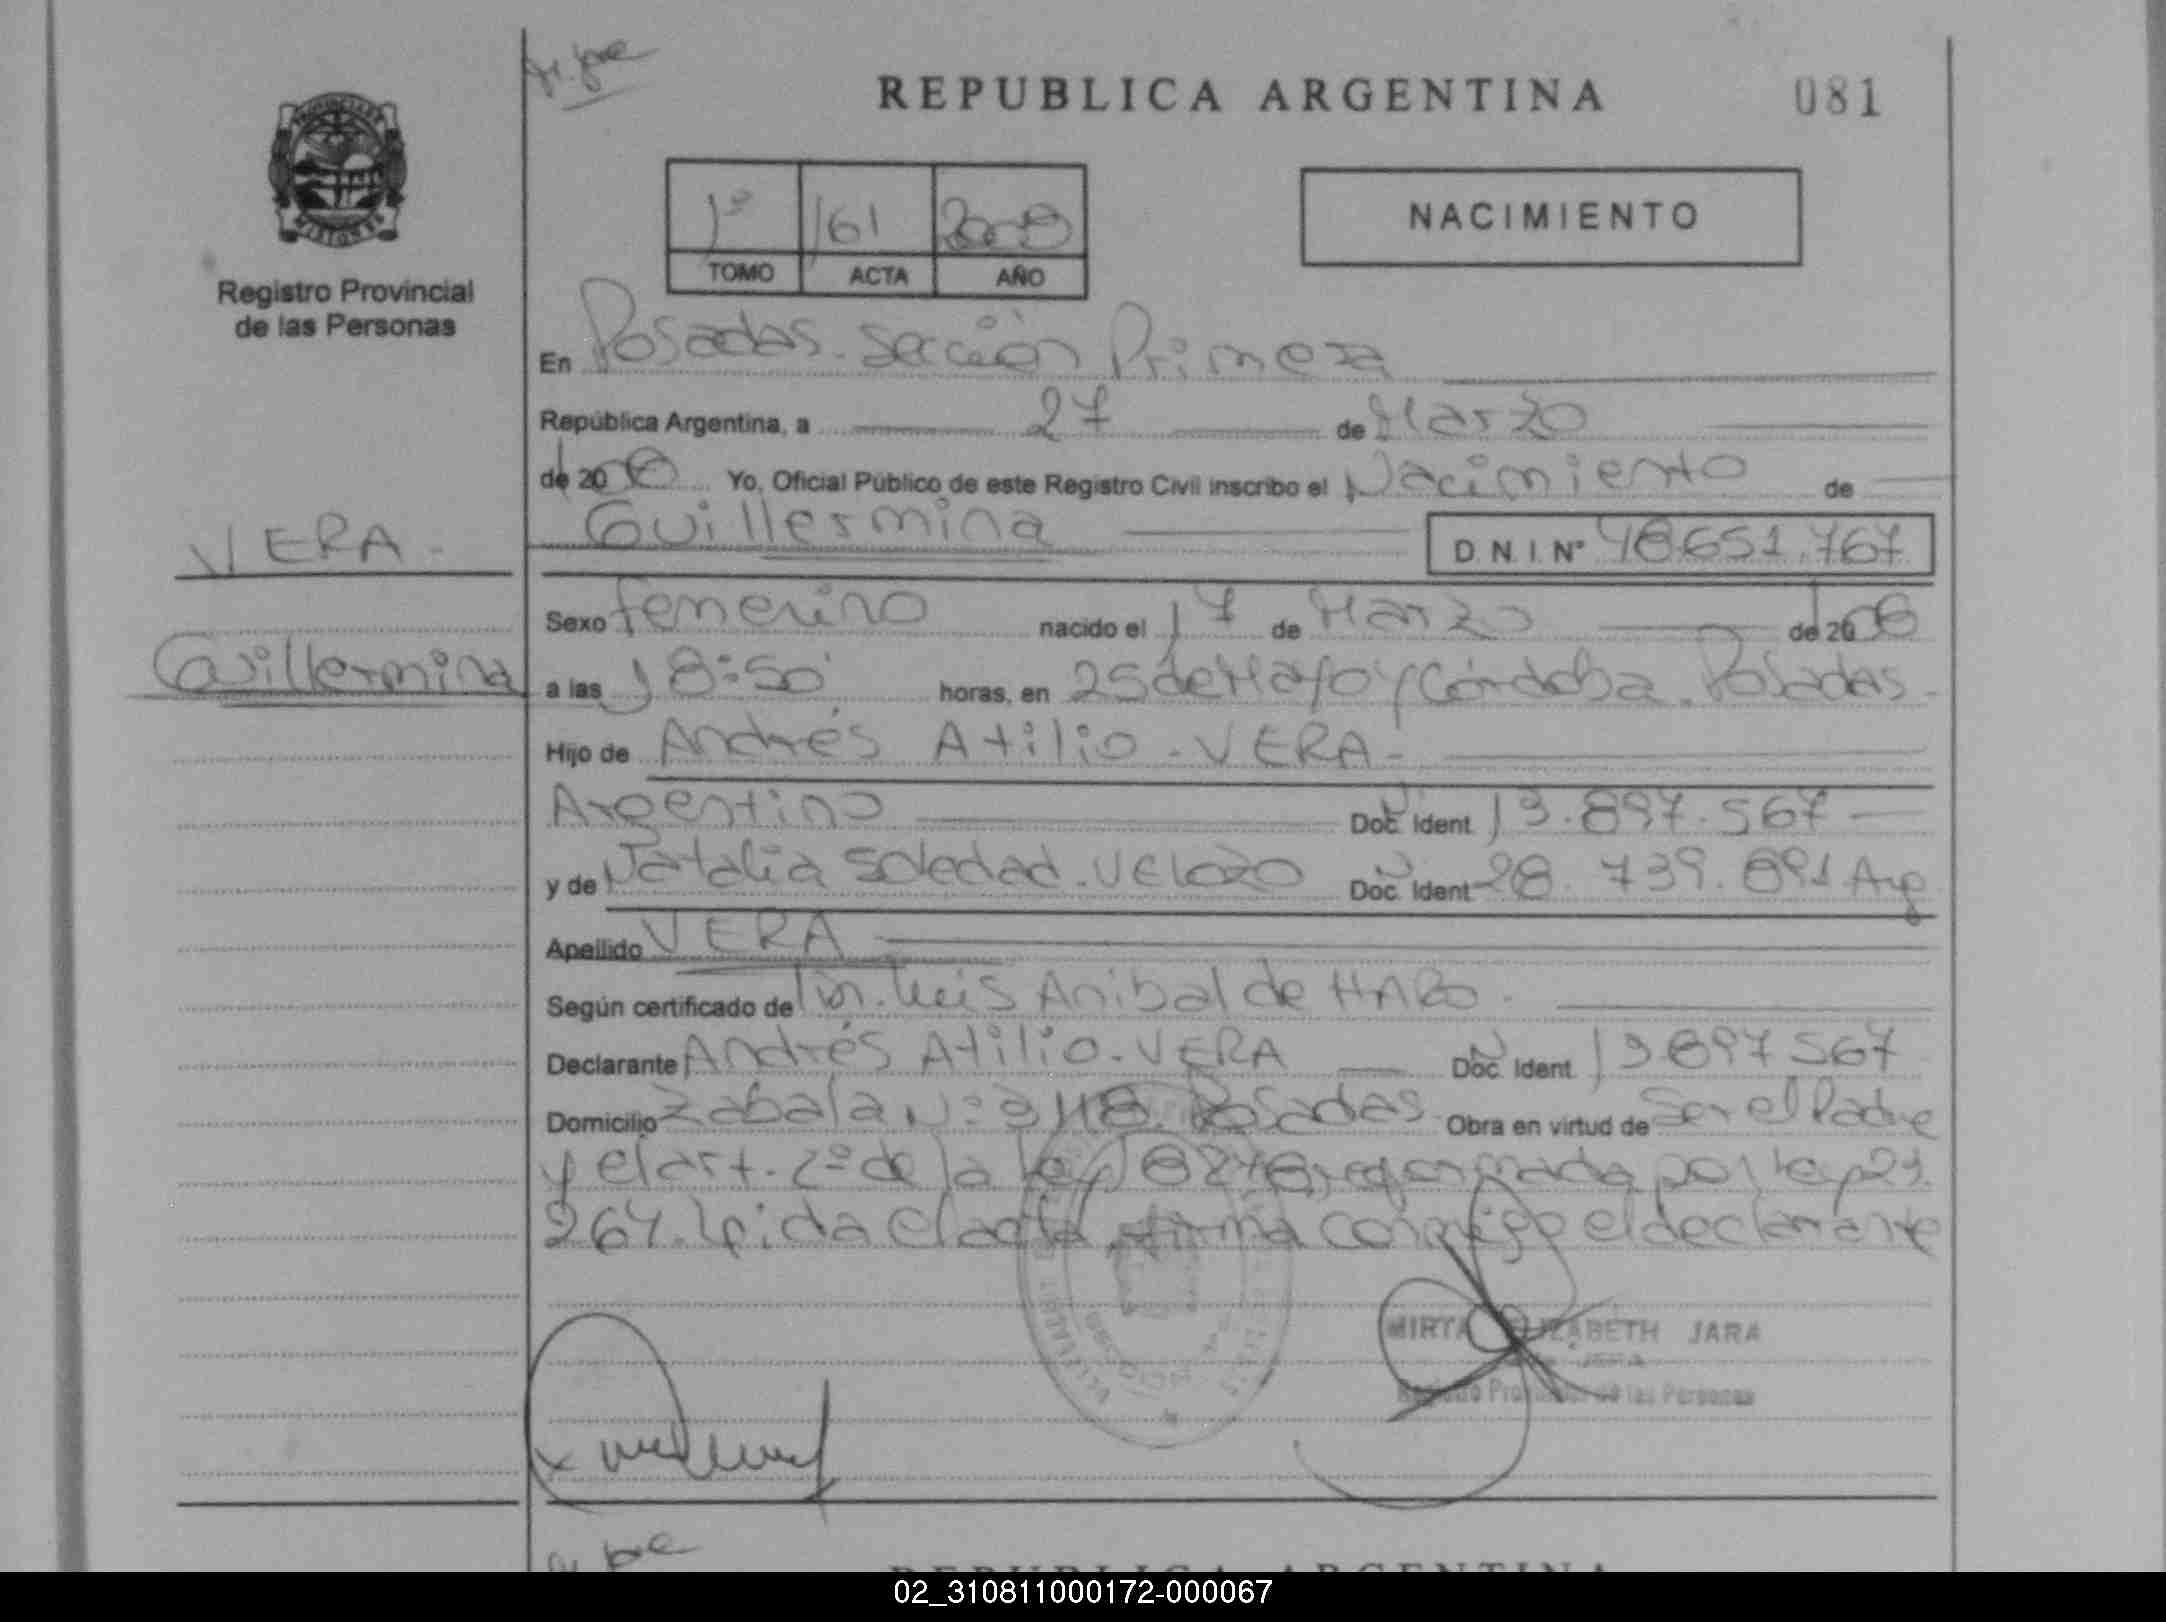 REPUBLICA ARGENTINA
081
PROVINCIA DE
MISIONES
Registro Provincial
de las Personas
1º 161 2008
TOMO ACTA AÑO
NACIMIENTO
En Posadas. Sección Primera
República Argentina, a 27 de Marzo
de 2008 Yo, Oficial Público de este Registro Civil inscribo el Nacimiento de
Guillermina D.N.I.Nº 48.651.767
VERA-
Guillermina
Sexo femenino nacido el 17 de Marzo de 2008
a las 18:50 horas, en 25 de Mayo y Córdoba. Posadas-
Hijo de Andrés Atilio - VERA-
Argentino Doc. Ident. 13.897.567
y de Natalia Soledad. Velozo Doc. Ident 28.739.891 Arg
Apellido VERA
Según certificado de Dr. Luis Anibal de HARO-
Declarante Andrés Atilio. VERA Doc. Ident. 13897567
Domicilio Zabala Nº 3118. Posadas Obra en virtud de Ser el Padre
y el art. 2º de la ley 18248, reformada por ley 23.
264. Leida el acta, firma conmigo el declarante
MIRTA ELIZABETH JARA
JEFA
Registro Provincial de las Personas
REPUBLICA ARGENTINA
02_310811000172-000067